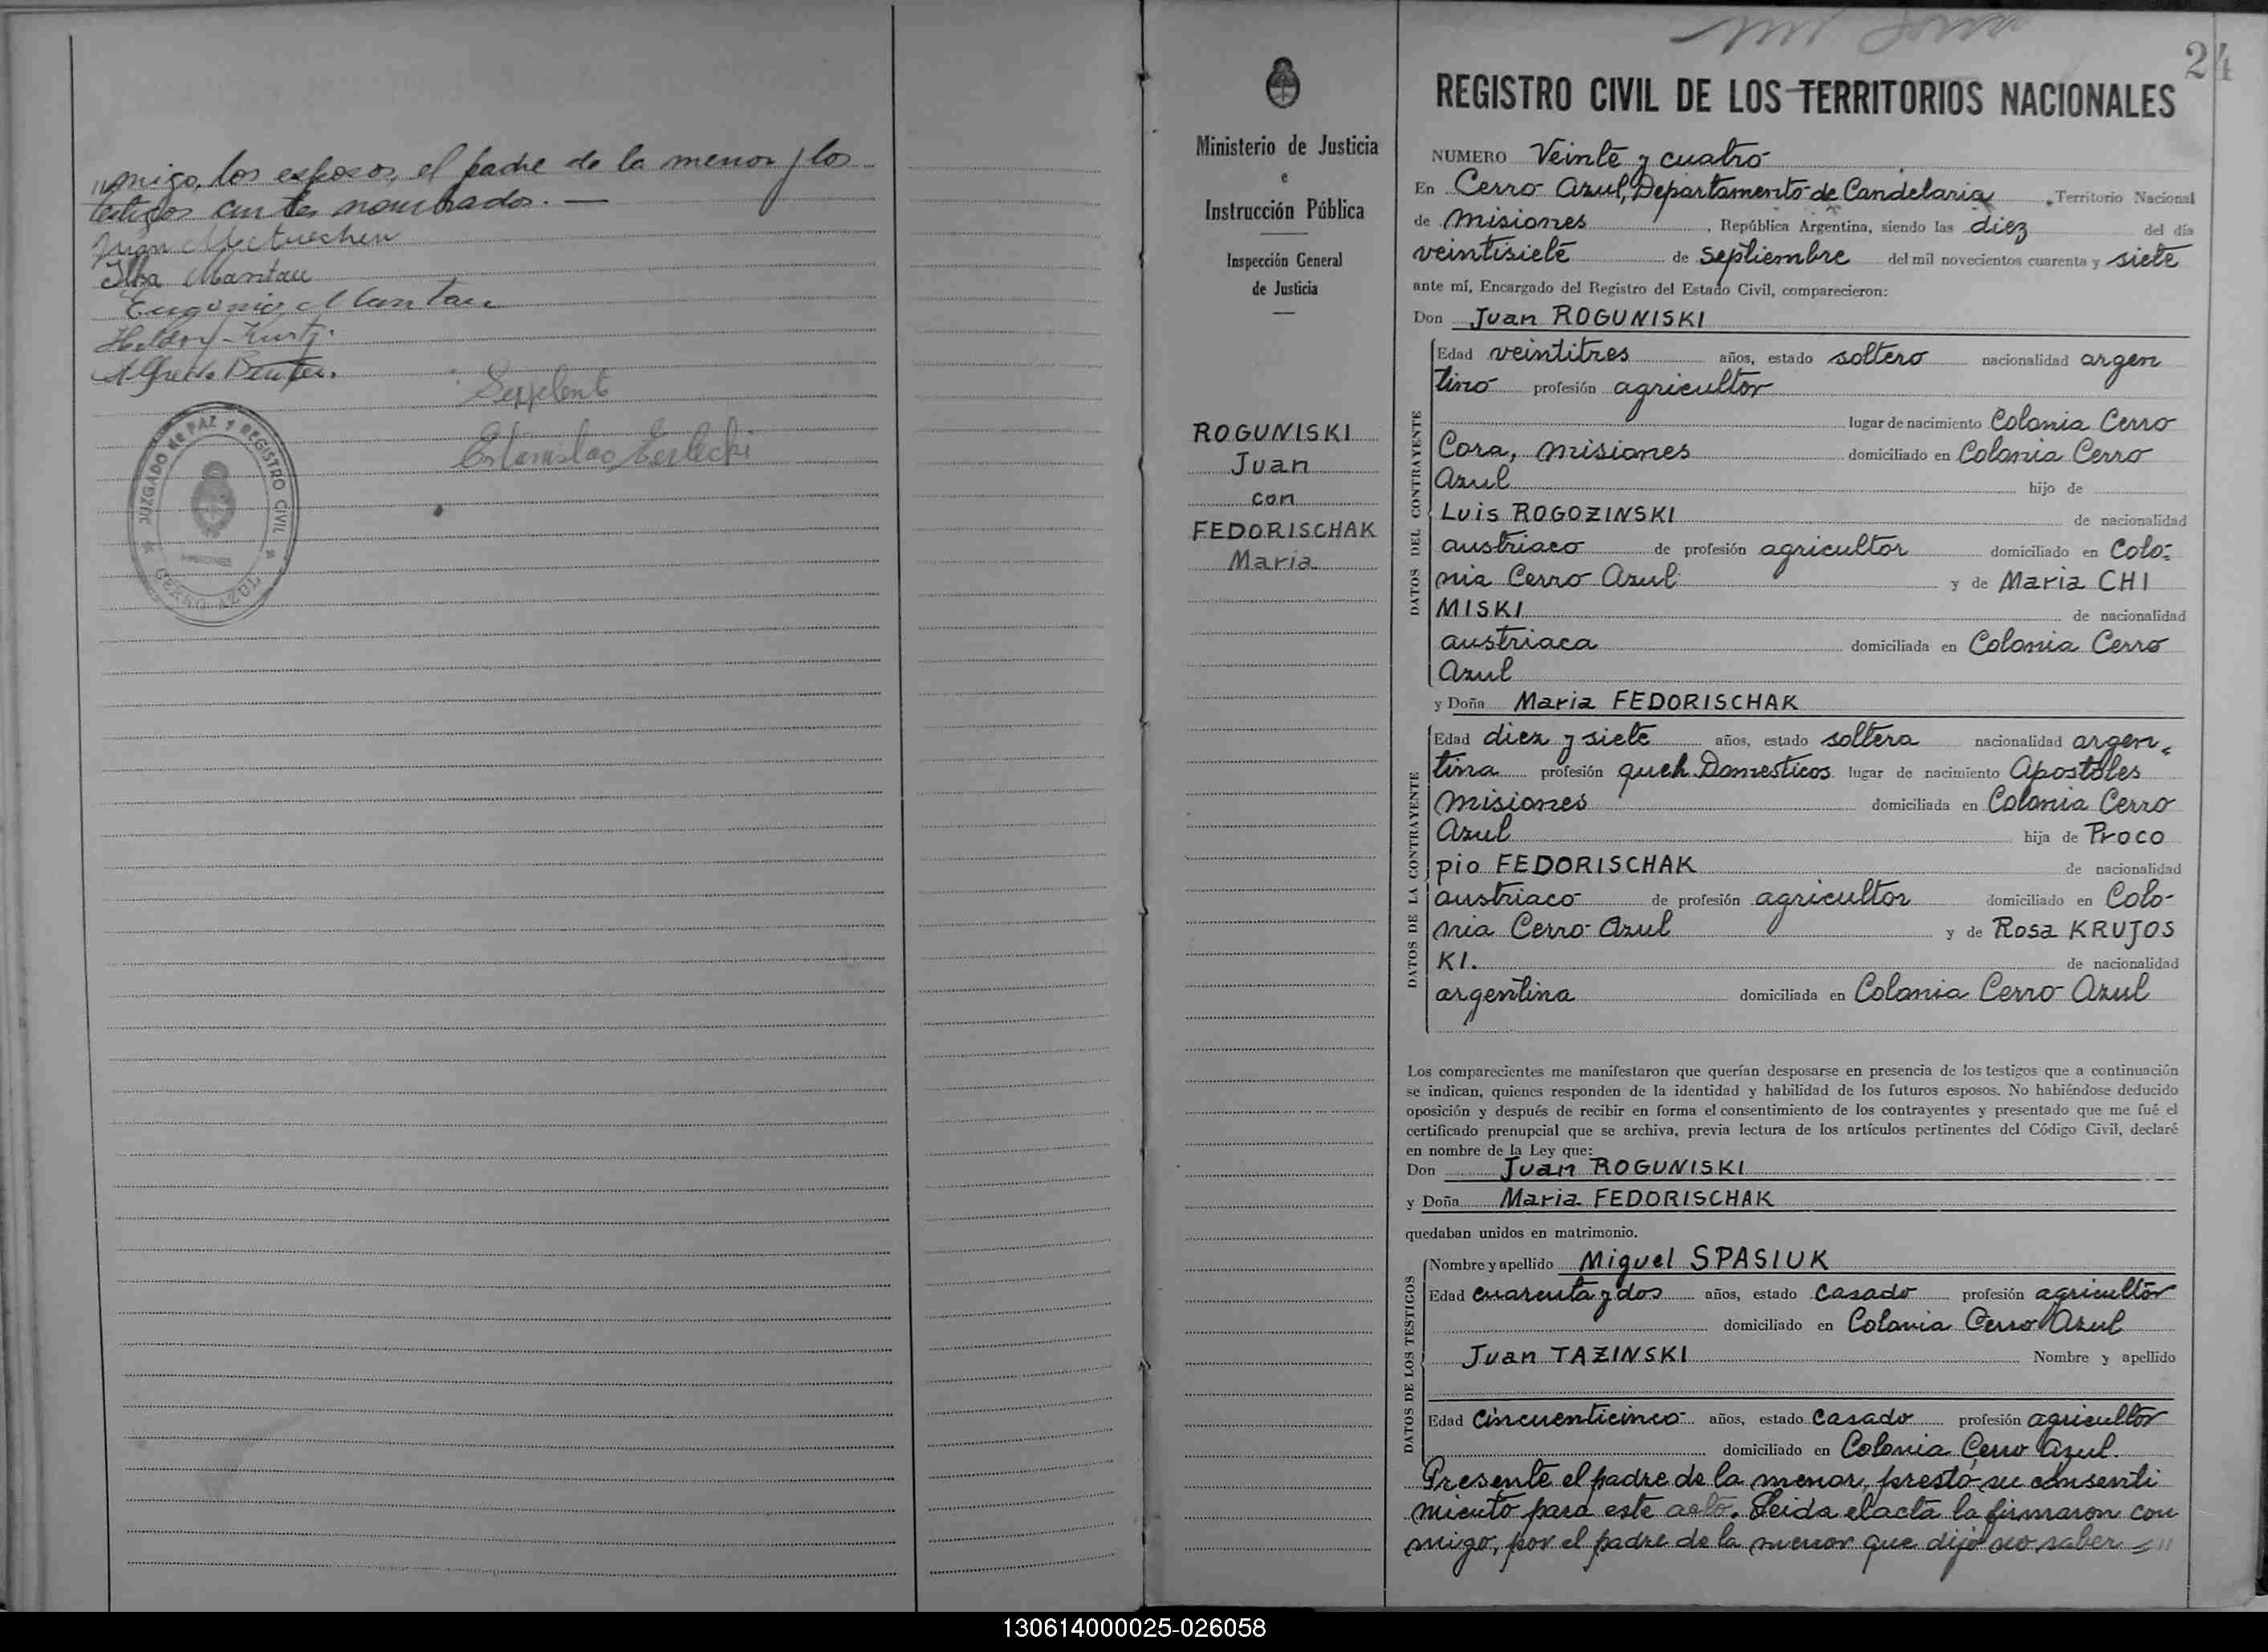 "migo, los esposos, el padre de la menor y los
testigos antes nombrados. —
Juan
Ilsa Mantau
Eugenio Mantau
Kurtz.
Alfredo
Estanislao
JUZGADO de PAZ y REGISTRO CIVIL
MISIONES
CERRO AZUL
Ministerio de Justicia
e
Instrucción Pública
Inspección General
de Justicia
ROGUNISKI
Juan
con
FEDORISCHAK
Maria
24
REGISTRO CIVIL DE LOS TERRITORIOS NACIONALES
NUMERO Veinte y cuatro
En Cerro Azul, Departamento de Candelaria, Territorio Nacional
de Misiones, República Argentina, siendo las diez del día
veintisiete de Septiembre del mil novecientos cuarenta y siete
ante mí, Encargado del Registro del Estado Civil, comparecieron:
Don Juan ROGUNISKI
DATOS DEL CONTRAYENTE
Edad veintitres años, estado soltero nacionalidad argen
tino profesión agricultor
lugar de nacimiento Colonia Cerro
Cora, Misiones domiciliado en Colonia Cerro
Azul hijo de
Luis ROGOZINSKI de nacionalidad
austriaco de profesión agricultor domiciliado en Colo-
nia Cerro Azul y de Maria CHI
MISKI de nacionalidad
austriaca domiciliada en Colonia Cerro
Azul
y Doña Maria FEDORISCHAK
DATOS DE LA CONTRAYENTE
Edad diez y siete años, estado soltera nacionalidad argen-
tina profesión queh. Domesticos lugar de nacimiento Apostoles
Misiones domiciliada en Colonia Cerro
Azul hija de Proco
pio FEDORISCHAK de nacionalidad
austriaco de profesión agricultor domiciliado en Colo-
nia Cerro Azul y de Rosa KRUJOS
KI. de nacionalidad
argentina domiciliada en Colonia Cerro Azul
Los comparecientes me manifestaron que querían desposarse en presencia de los testigos que a continuación
se indican, quienes responden de la identidad y habilidad de los futuros esposos. No habiéndose deducido
oposición y después de recibir en forma el consentimiento de los contrayentes y presentado que me fué el
certificado prenupcial que se archiva, previa lectura de los artículos pertinentes del Código Civil, declaré
en nombre de la Ley que:
Don Juan ROGUNISKI
y Doña Maria FEDORISCHAK
quedaban unidos en matrimonio.
DATOS DE LOS TESTIGOS
Nombre y apellido Miguel SPASIUK
Edad cuarenta y dos años, estado casado profesión agricultor
domiciliado en Colonia Cerro Azul
Juan TAZINSKI Nombre y apellido
Edad cincuenticinco años, estado casado profesión agricultor
domiciliado en Colonia Cerro Azul.
Presente el padre de la menor, prestó su consenti
miento para este acto. Leida el acta la firmaron con
migo, por el padre de la menor que dijo no saber
130614000025-026058